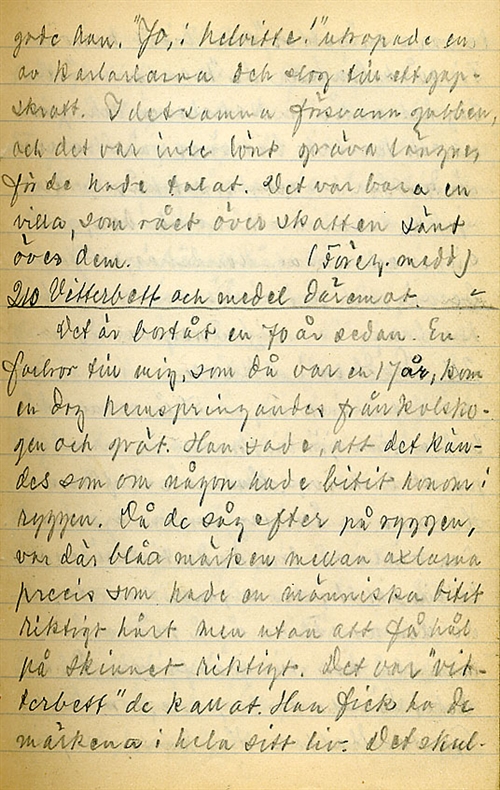 gode Aan. "Jo, i helvitte!" utropade en
av karlarlarna och slog till ett gap-
skratt. I detsamma försvann gubben,
och det var inte lönt gräva längre,
för de hade talat. Det var bara en
villa, som rået över skatten sänt
över dem. (Föret. medd)
210 Vitterbett och medel däremot.
Det är bortåt en 70 år sedan. En
farbror till mig, som då var en 17 år, kom
en dag hemspringandes från kolsko-
gen och gråt. Han sade, att det kän-
des som om någon hade bitit honom i
ryggen. Då de såg efter på ryggen,
var där blåa märken mellan axlarna
precis som hade en människa bitit
riktigt hårt men utan att få hål
på skinnet riktigt. Det var "vit-
terbett" de kallat. Han fick ha de
märkena i hela sitt liv. Det skul-